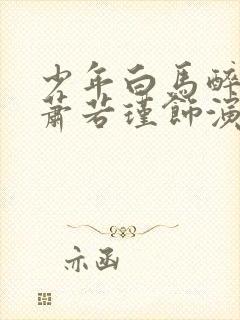 少年白馬醉
蕭若瑾飾演
亦函